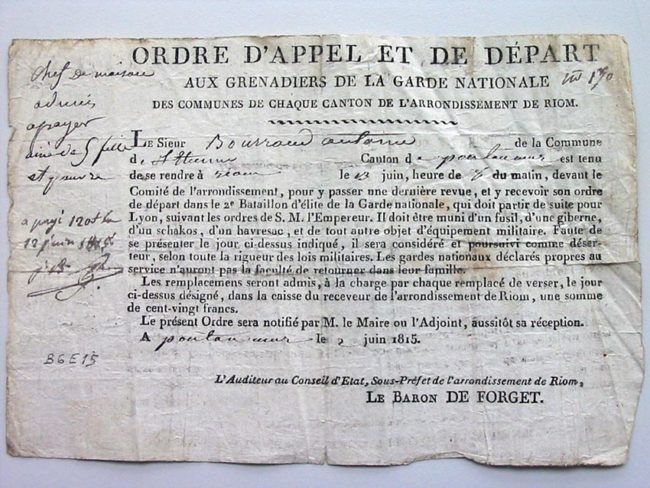 ORDRE D'APPEL ET DE DÉPART
AUX GRENADIERS DE LA GARDE NATIONALE
DES COMMUNES DE CHAQUE CANTON DE L'ARRONDISSEMENT DE RIOM.
Chef de maison
admis
a payer
a payé 120
12 juin 1815
B6E15
LE Sieur Bourraud antoine de la Commune
d Canton d est tenu
de se rendre à riom le 13 juin, heure de du matin, devant le
Comité de l'arrondissement, pour y passer une dernière revue, et y recevoir son ordre
de départ dans le 2e Bataillon d'élite de la Garde nationale, qui doit partir de suite pour
Lyon, suivant les ordres de S. M. l'Empereur. Il doit être muni d'un fusil, d'une giberne,
d'un schakos, d'un havresac, et de tout autre objet d'équipement militaire. Faute de
se présenter le jour ci-dessus indiqué, il sera considéré et poursuivi comme déser-
teur, selon toute la rigueur des lois militaires. Les gardes nationaux déclarés propres au
service n'auront pas la faculté de retourner dans leur famille.
Les remplacemens seront admis, à la charge par chaque remplacé de verser, le jour
ci-dessus désigné, dans la caisse du receveur de l'arrondissement de Riom, une somme
de cent-vingt francs.
Le présent Ordre sera notifié par M. le Maire ou l'Adjoint, aussitôt sa réception.
A le 2 juin 1815.
L'Auditeur au Conseil d'Etat, Sous-Préfet de l'arrondissement de Riom,
LE BARON DE FORGET.